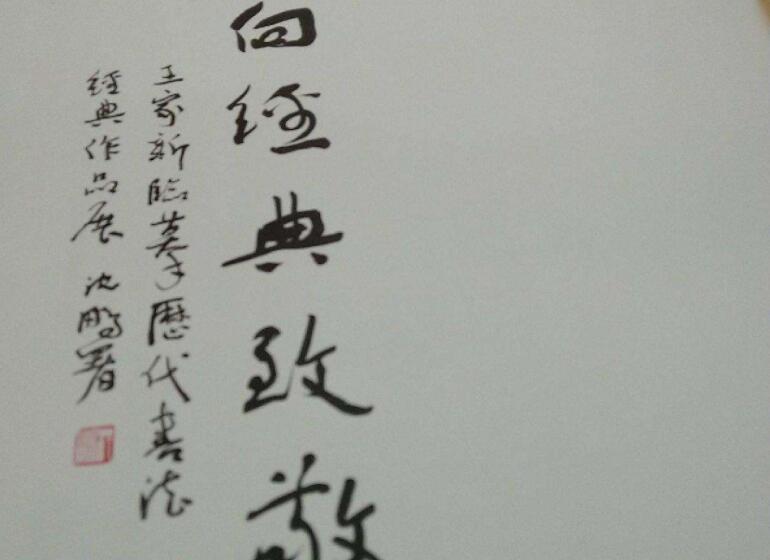 向經典致敬
王家新臨摹歷代書法
經典作品展 沈鵬署